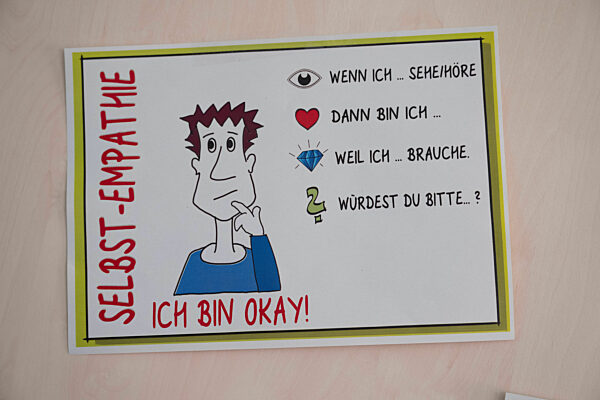 SELBST-EMPATHIE
WENN ICH ... SEHE/HÖRE
DANN BIN ICH ...
WEIL ICH ... BRAUCHE.
WÜRDEST DU BITTE... ?
ICH BIN OKAY!